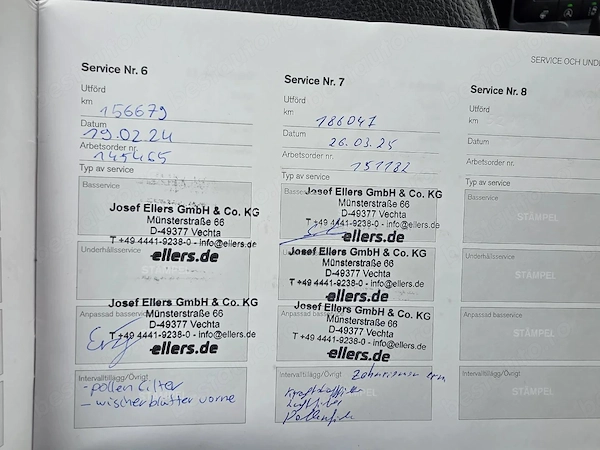 SERVICE OCH UNDE
Service Nr. 6
Utförd
km
156679
Datum
19.02.24
Arbetsorder nr.
145465
Typ av service
Basservice
Josef Ellers GmbH & Co. KG
Münsterstraße 66
D-49377 Vechta
T +49 4441-9238-0 - info@ellers.de
ellers.de
Underhållsservice
STÄMPEL
Anpassad basservice
Josef Ellers GmbH & Co. KG
Münsterstraße 66
D-49377 Vechta
T +49 4441-9238-0 - info@ellers.de
ellers.de
Intervalltillägg/Övrigt
- pollenfilter
- wischerblätter vorne
Service Nr. 7
Utförd
km
186047
Datum
26.03.25
Arbetsorder nr.
151182
Typ av service
Basservice
Josef Ellers GmbH & Co. KG
Münsterstraße 66
D-49377 Vechta
T +49 4441-9238-0 - info@ellers.de
ellers.de
Underhållsservice
Josef Ellers GmbH & Co. KG
Münsterstraße 66
D-49377 Vechta
T +49 4441-9238-0 - info@ellers.de
ellers.de
Anpassad basservice
Josef Ellers GmbH & Co. KG
Münsterstraße 66
D-49377 Vechta
T +49 4441-9238-0 - info@ellers.de
ellers.de
Intervalltillägg/Övrigt
Kraftstofffilter
Luftfilter
Pollenfilter
Service Nr. 8
Utförd
km
Datum
Arbetsorder nr.
Typ av service
Basservice
STÄMPEL
Underhållsservice
STÄMPEL
Anpassad basservice
STÄMPEL
Intervalltillägg/Övrigt
STÄMPEL